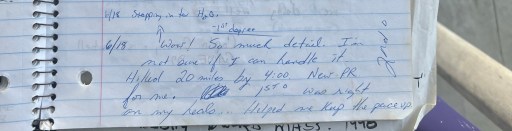 6/18 Stepping in for H2O.
-1st degree
6/18 Wow! So much detail. I'm
not sure if I can handle it.
Hiked 20 miles by 4:00 New PR
for me. was right
on my heels... Helped me keep the pace up
MASS. 1996